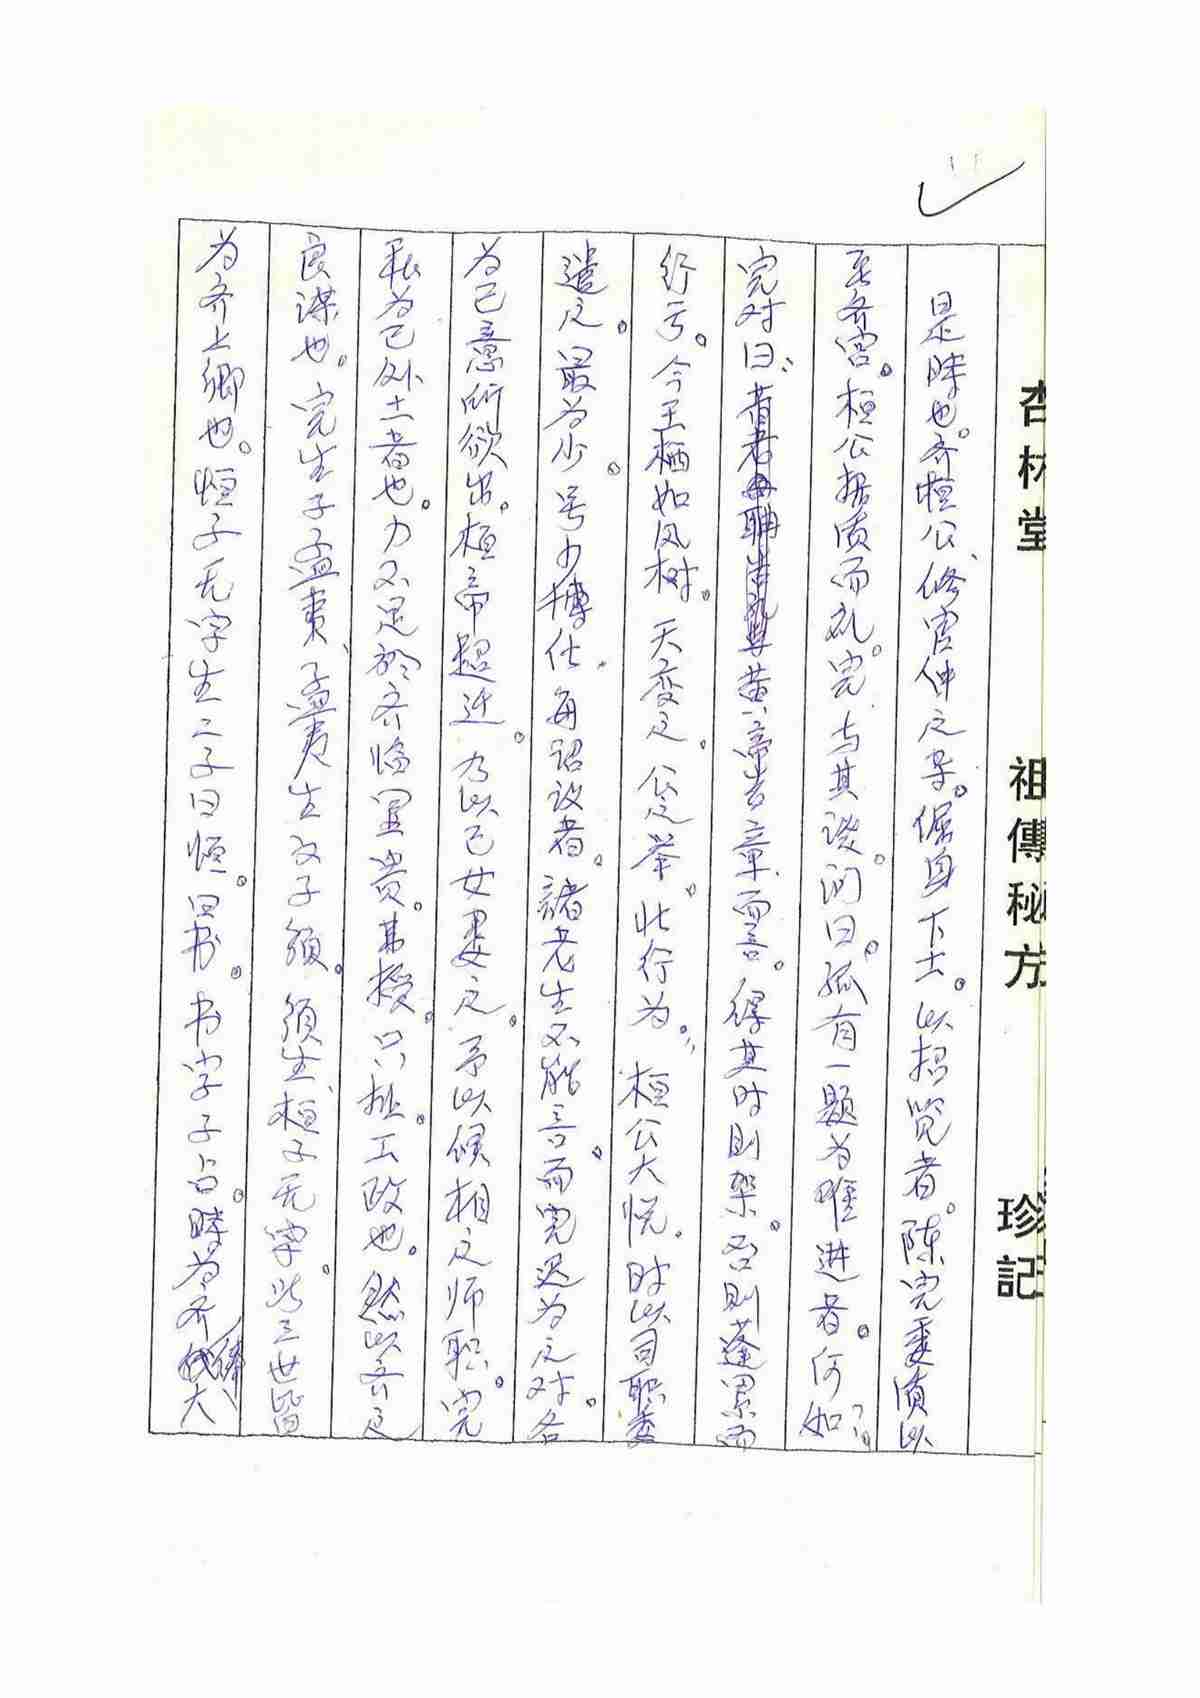 杏林堂 祖傳秘方 珍記
是時也。齐桓公、修管仲之 。倨身下士。以招览者。陈完委质以
至齐宫。桓公据质而礼。完与其谈。问曰。孤有一题为 进者。何如?"
完对曰:" 黄帝 章而言。得其时则架。否则蓬累而
行亏。今王栖如风树。天变之。公之举。此行为。"桓公大悦。时以司职委
遣之。最为少。号少博仕。每诏议者。諸老生不能言。而完迅为之对。各
为己意所欲出。桓帝超迁。乃以己女妻之。予以候相之师职。完
私为己外士者也。力不足於齐临 贵。其授。只 工政也。然以齐之
良谋也。完生子孟夷、孟夷生文子须。须生、桓子无宇。此三世皆
为齐上卿也。恒子无宇生二子曰恒。曰书。书字子占。時为齐 大